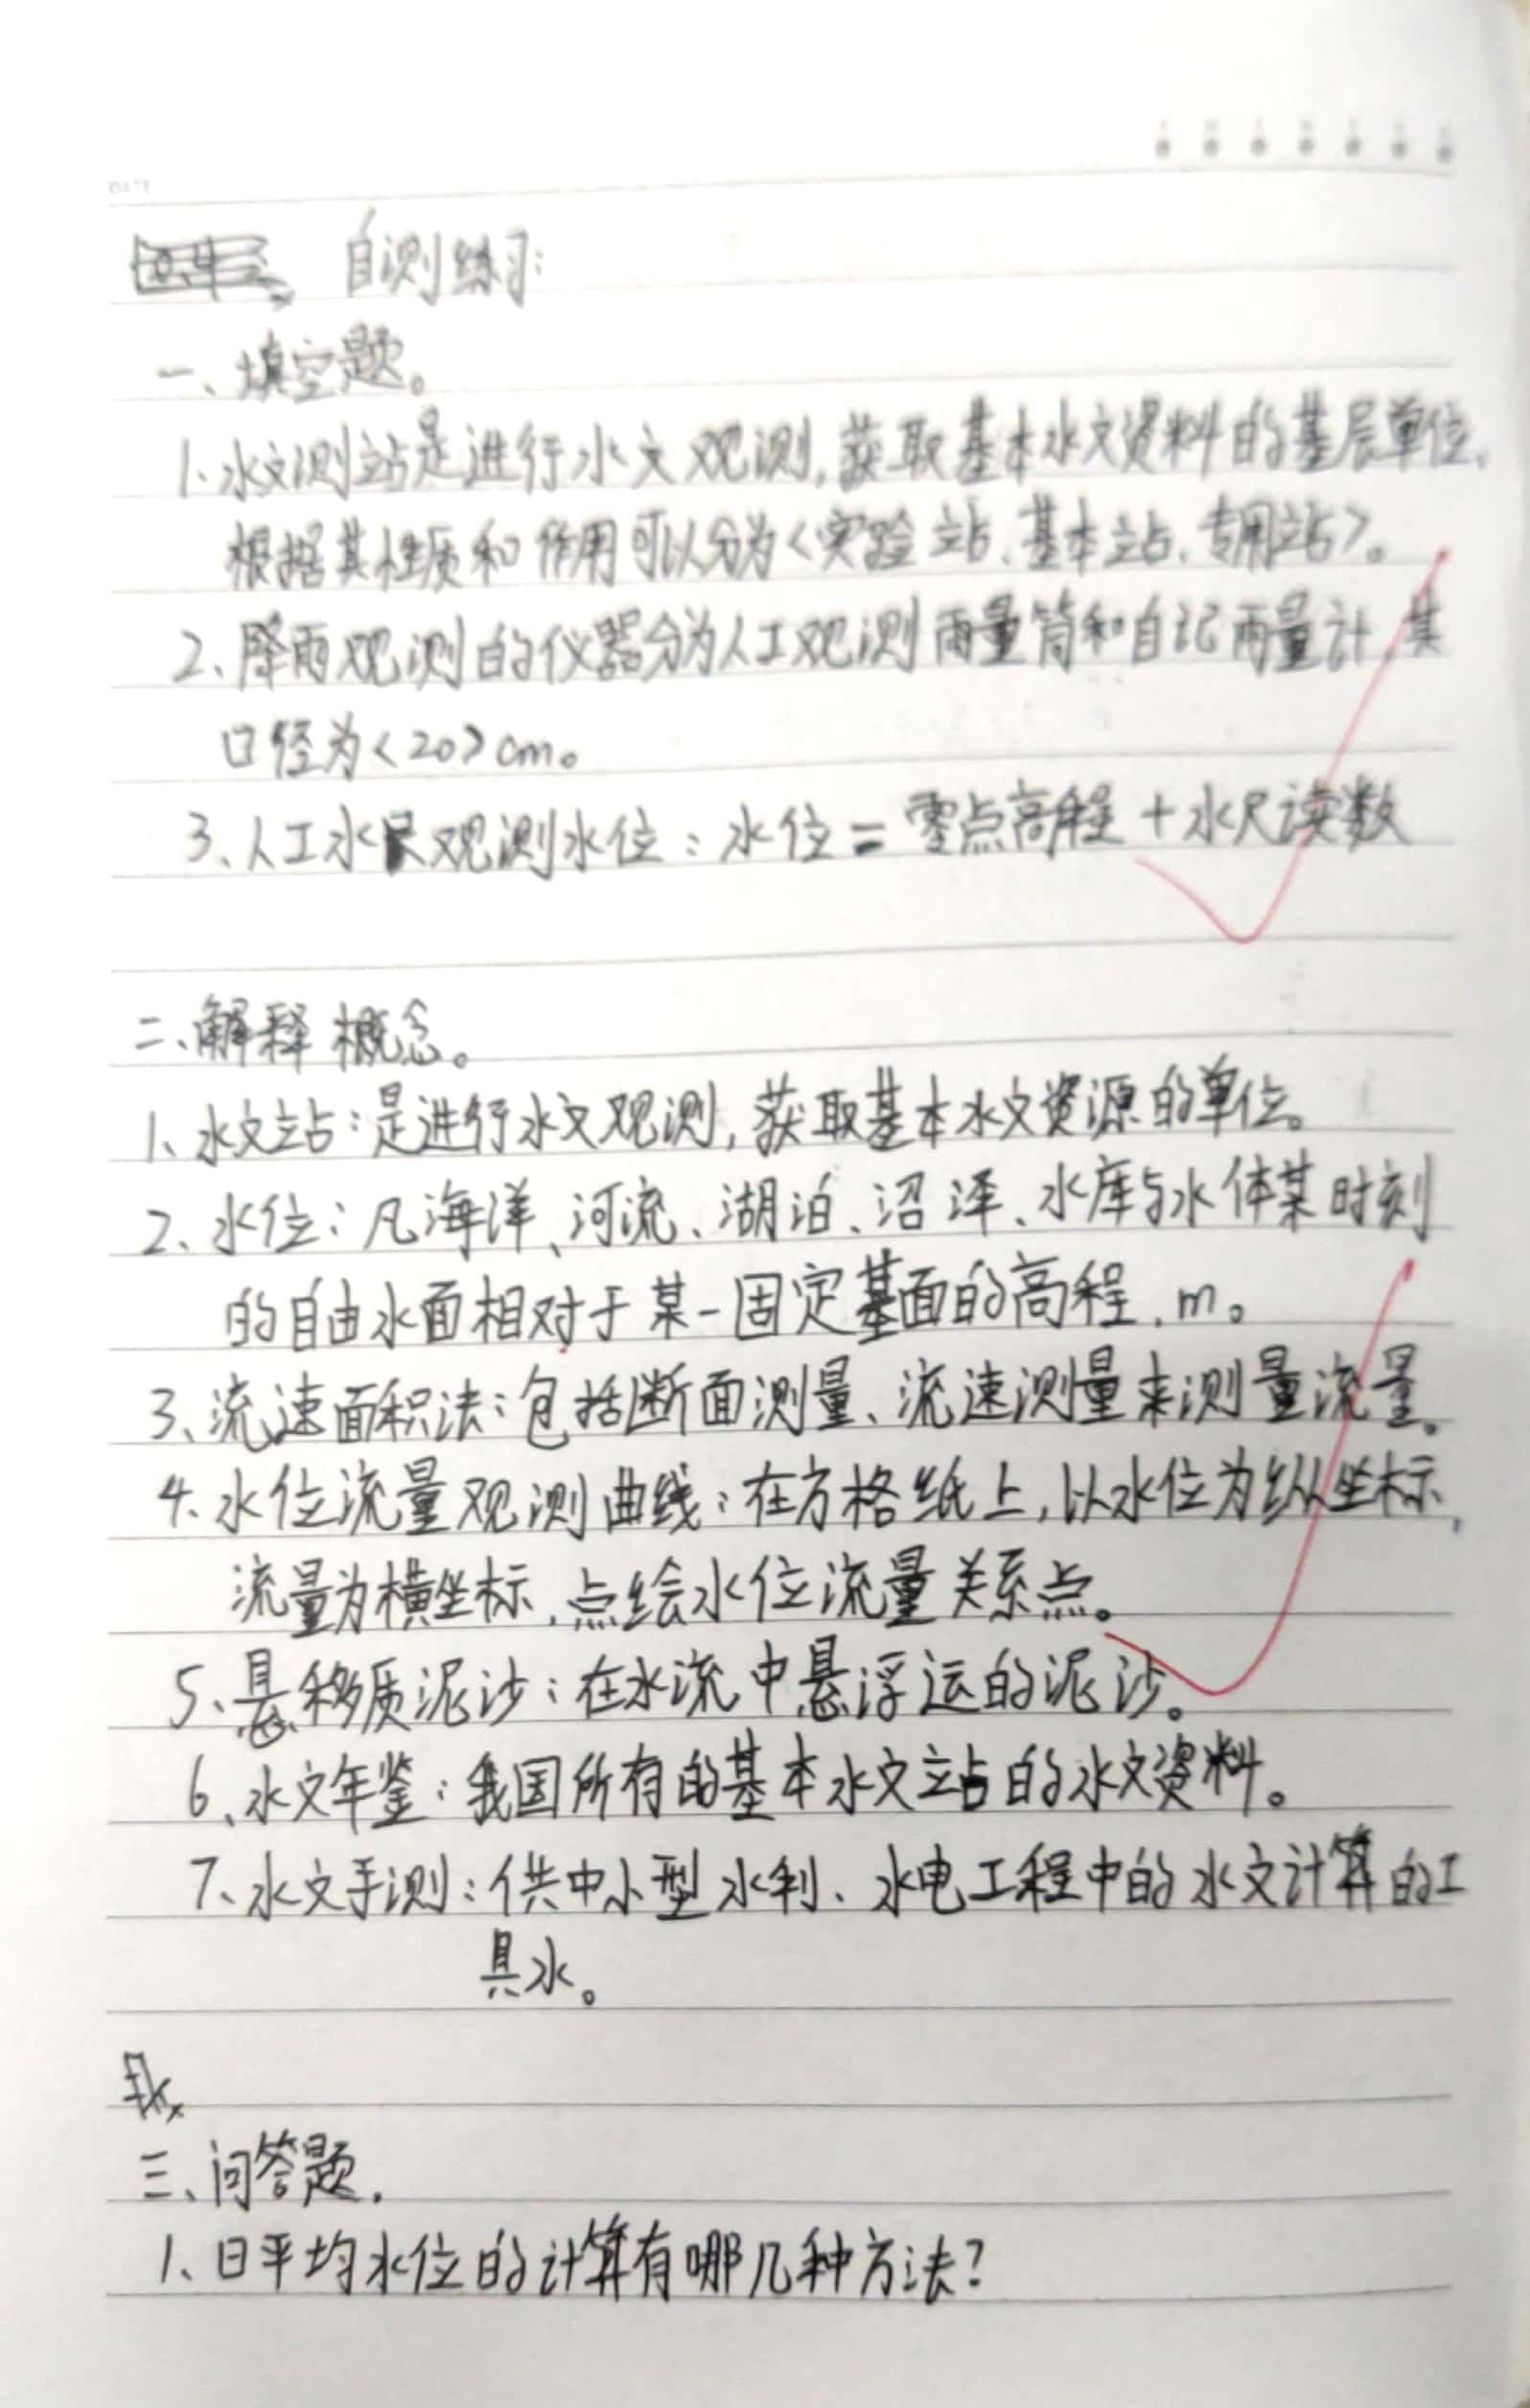 DATE
自测练习:
一、填空题。
1.水文测站是进行水文观测,获取基本水文资料的基层单位,
根据其性质和作用可以分为<实验站、基本站、专用站>。
2、降雨观测的仪器分为人工观测雨量筒和自记雨量计,其
口径为<20>cm。
3、人工水尺观测水位:水位=零点高程+水尺读数
二、解释概念。
1、水文站:是进行水文观测,获取基本水文资源的单位。
2、水位:凡海洋、河流、湖泊、沼泽、水库与水体某时刻
的自由水面相对于某一固定基面的高程,m。
3、流速面积法:包括断面测量、流速测量来测量流量。
4、水位流量观测曲线:在方格纸上,以水位为纵坐标,
流量为横坐标,点绘水位流量关系点。
5、悬移质泥沙:在水流中悬浮运的泥沙。
6、水文年鉴:我国所有的基本水文站的水文资料。
7、水文手测:供中小型水利、水电工程中的水文计算的工
具水。
三、问答题.
1、日平均水位的计算有哪几种方法?